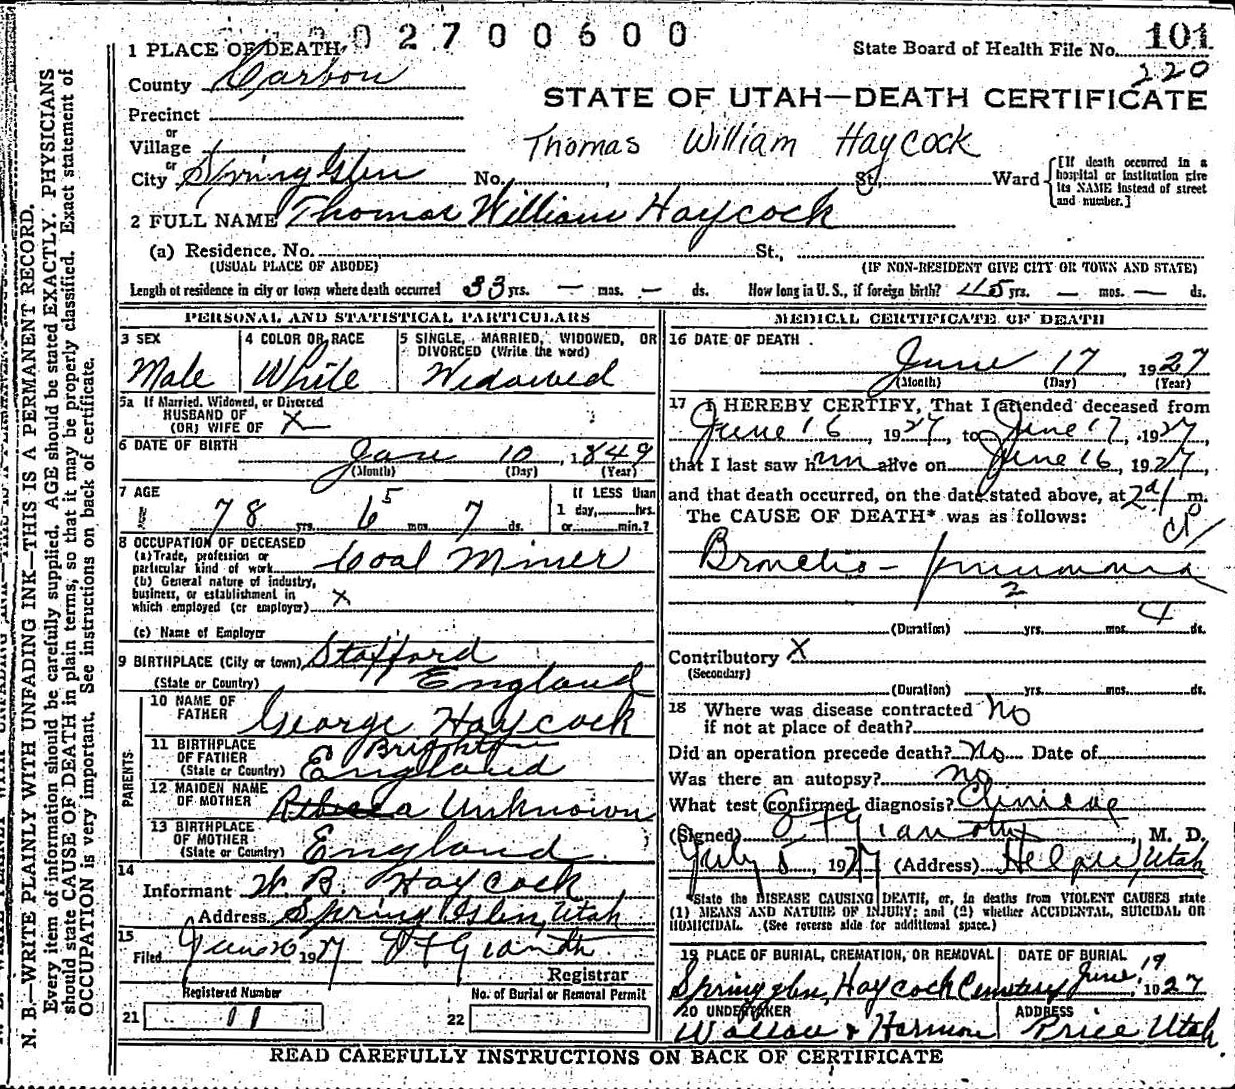 02700600
1 PLACE OF DEATH
State Board of Health File No. 101
220
County Carbon
STATE OF UTAH—DEATH CERTIFICATE
Precinct
or
Village
Thomas William Haycock
or
City Spring Glen No. , St., Ward
[If death occurred in a
hospital or institution give
its NAME instead of street
and number.]
2 FULL NAME Thomas William Haycock
(a) Residence. No. St.,
(USUAL PLACE OF ABODE)
(IF NON-RESIDENT GIVE CITY OR TOWN AND STATE)
Length of residence in city or town where death occurred 33 yrs. — mos. — ds. How long in U.S., if foreign birth? 45 yrs. — mos. — ds.
PERSONAL AND STATISTICAL PARTICULARS
3 SEX
Male
4 COLOR OR RACE
White
5 SINGLE, MARRIED, WIDOWED, OR
DIVORCED (Write the word)
Widowed
5a If Married, Widowed, or Divorced
HUSBAND OF
(OR) WIFE OF X
6 DATE OF BIRTH
10, 1849
(Month) (Day) (Year)
7 AGE
78 yrs. 6 5 mos. 7 ds.
If LESS than
1 day, hrs.
or min.?
8 OCCUPATION OF DECEASED
(a) Trade, profession or
particular kind of work Coal Miner
(b) General nature of industry,
business, or establishment in
which employed (or employer) X
(c) Name of Employer
9 BIRTHPLACE (City or town) Stafford
(State or Country) England
PARENTS
10 NAME OF
FATHER George Haycock
11 BIRTHPLACE
OF FATHER Brighton
(State or Country) England
12 MAIDEN NAME
OF MOTHER Unknown
13 BIRTHPLACE
OF MOTHER
(State or Country) England
14
Informant W B. Haycock
Address Spring Glen, Utah
15
Filed June 20 1927
Registrar
Registered Number
21 11
No. of Burial or Removal Permit
22
MEDICAL CERTIFICATE OF DEATH
16 DATE OF DEATH
June 17 1927
(Month) (Day) (Year)
17 I HEREBY CERTIFY, That I attended deceased from
June 16, 1927, to June 17, 1927,
that I last saw him alive on June 16, 1927,
and that death occurred, on the date stated above, at m.
The CAUSE OF DEATH* was as follows:
Broncho-pneumonia
2
(Duration) yrs. mos. 4 ds.
Contributory X
(Secondary)
(Duration) yrs. mos. ds.
18 Where was disease contracted
if not at place of death? No
Did an operation precede death? No Date of
Was there an autopsy? no
What test confirmed diagnosis? Clinical
(Signed) , M. D.
July 5, 1927 (Address) Helper, Utah
*State the DISEASE CAUSING DEATH, or, in deaths from VIOLENT CAUSES state
(1) MEANS AND NATURE OF INJURY; and (2) whether ACCIDENTAL, SUICIDAL OR
HOMICIDAL. (See reverse side for additional space.)
19 PLACE OF BURIAL, CREMATION, OR REMOVAL
Spring glen, Haycock Cemetery
DATE OF BURIAL
June 19, 1927
20 UNDERTAKER
Wallace & Harmon
ADDRESS
Price Utah
READ CAREFULLY INSTRUCTIONS ON BACK OF CERTIFICATE
N. B.—WRITE PLAINLY WITH UNFADING INK—THIS IS A PERMANENT RECORD.
Every item of information should be carefully supplied. AGE should be stated EXACTLY. PHYSICIANS
should state CAUSE OF DEATH in plain terms, so that it may be properly classified. Exact statement of
OCCUPATION is very important. See instructions on back of certificate.